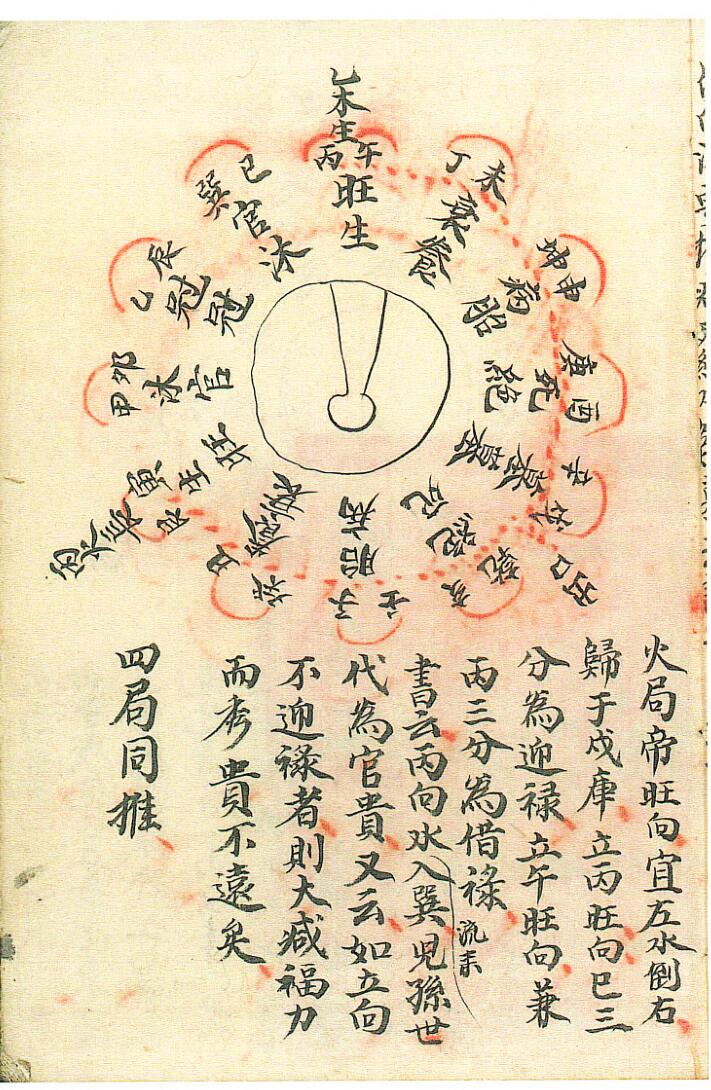 乙木生
丙午
旺
生
丁未
衰
養
坤申
病
胎
庚酉
死
絕
辛戌
墓
墓
出口
乾亥
絕
死
壬子
胎
病
癸丑
養
衰
艮寅
生
旺
甲卯
沐
官
乙辰
冠
冠
巽巳
官
沐
火局帝旺向宜左水倒右
歸于戌庫立丙旺向巳三
分為迎禄立午旺向兼
丙三分為借禄
流来
書云丙向水入巽児孫世
代為官貴又云如立向
不迎禄者則大减福力
而秀貴不遠矣
四局同推